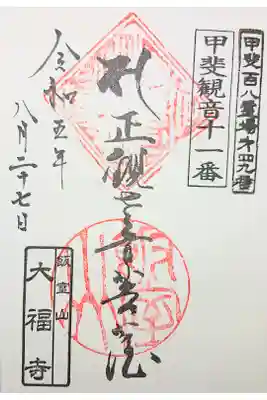 甲斐百八霊場第四九番
甲斐観音十一番
正観世音菩薩
令和五年
八月二十七日
飯室山
大福寺